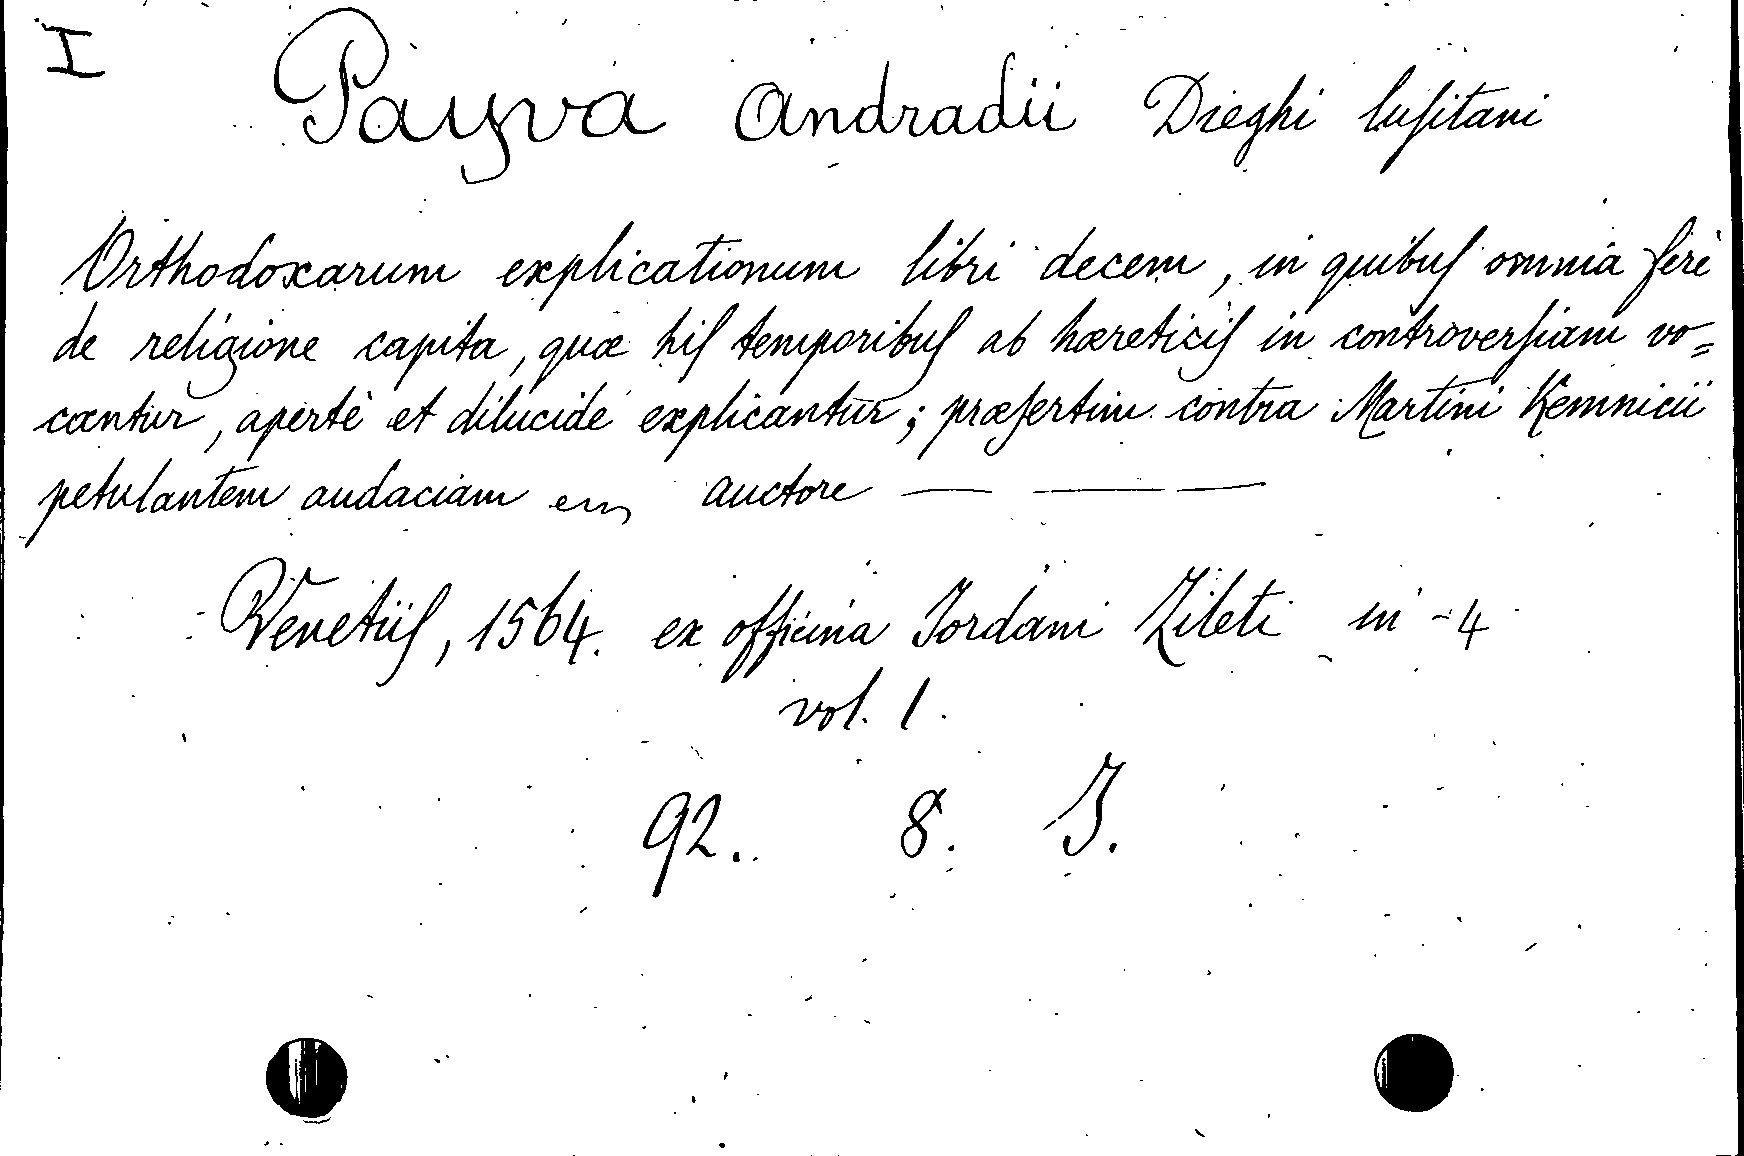 I
Payva Andradii Dieghi lusitani
Orthodoxarum explicationum libri decem, in quibus omnia ferè
de religione capita, quæ his temporibus ab hæreticis in controversiam vo=
cantur, apertè et dilucidè explicantur; præsertim contra Martini Kemnicii
petulantem audaciam auctore — — —
Venetiis, 1564. ex officina Jordani Zileti in-4
vol. 1.
92. 8. J.